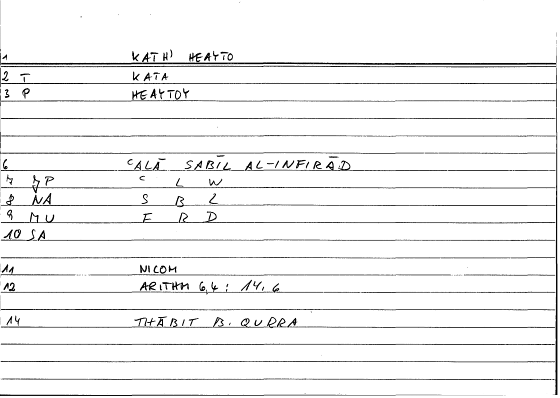 1 KATH' HEAYTO
2 T KATA
3 P HEAYTOY
6 ʿALĀ SABĪL AL-INFIRĀD
7 JP ʿ L W
8 NA S B L
9 MU F R D
10 SA
11 NICOM
12 ARITHM 6,4 : 14,6
14 THĀBIT B. QURRA